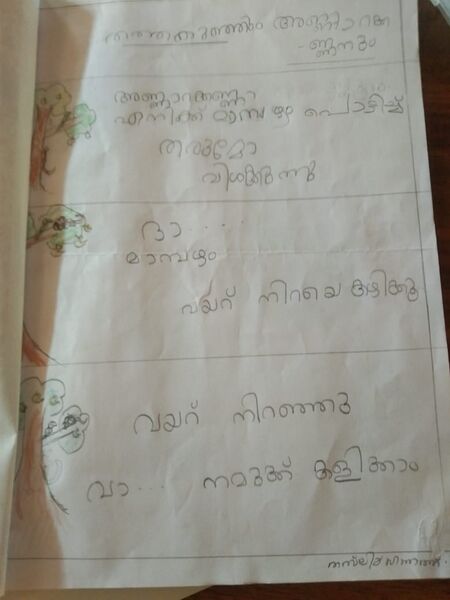 തത്തകുഞ്ഞും അണ്ണാറക്ക
-ണ്ണനും
അണ്ണാറക്കണ്ണാ
എനിക്ക് മാമ്പഴം പൊട്ടിച്ച്
തരുമോ
വിശക്കുന്നു
ദാ....
മാമ്പഴം
വയറ് നിറയെ കഴിക്കൂ
വയറ് നിറഞ്ഞു
വാ... നമുക്ക് കളിക്കാം